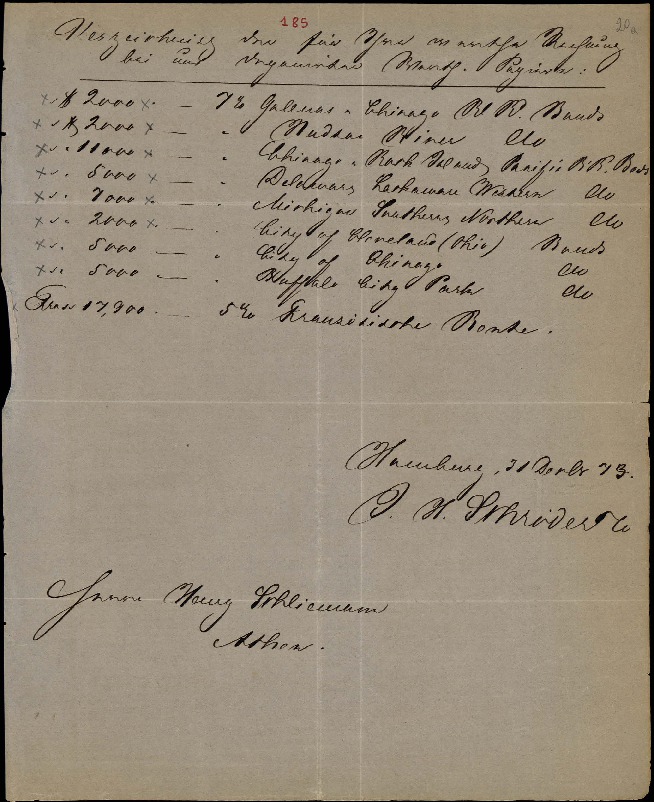 185
20a
Verzeichniss der für Ihre werthe Rechnung
bei uns deponirten Werth-Papiere:
$ 2000 — 7% Galena & Chicago R R. Bonds
$ 2000 — " Hudson River do
" 11000 — " Chicago & Rock Island & Pacific RR. Bonds
" 5000 — " Delaware Lackawana Western do
" 7000 — " Michigan Southern Northern do
" 2000 — " City of Cleveland (Ohio) Bonds
" 5000 — " City of Chicago do
" 5000 — " Buffalo City Park do
Frcs 17,900. — 5% Französische Rente.
Hamburg, 31 Decbr 73.
J. H. Schröder & Co
Herrn Henry Schliemann
Athen.